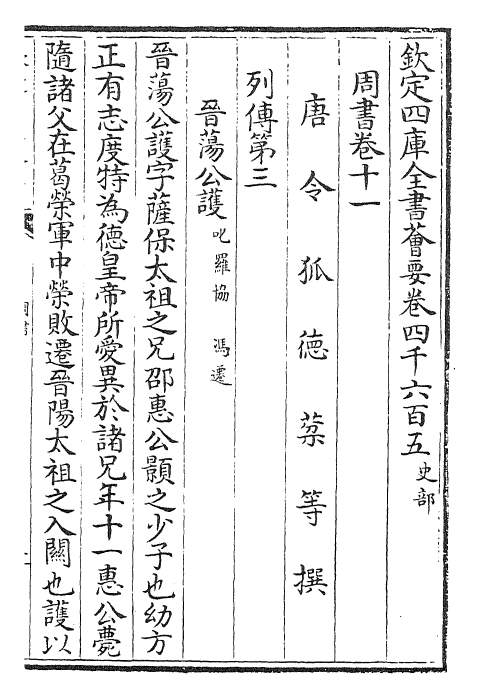 欽定四庫全書薈要卷四千六百五 史部
周書卷十一
唐令狐德棻等撰
列傳第三
晉蕩公護 叱羅協 馮遷
晉蕩公護字薩保太祖之兄邵惠公顥之少子也幼方
正有志度特為德皇帝所愛異於諸兄年十一惠公薨
隨諸父在葛榮軍中榮敗遷晉陽太祖之入關也護以